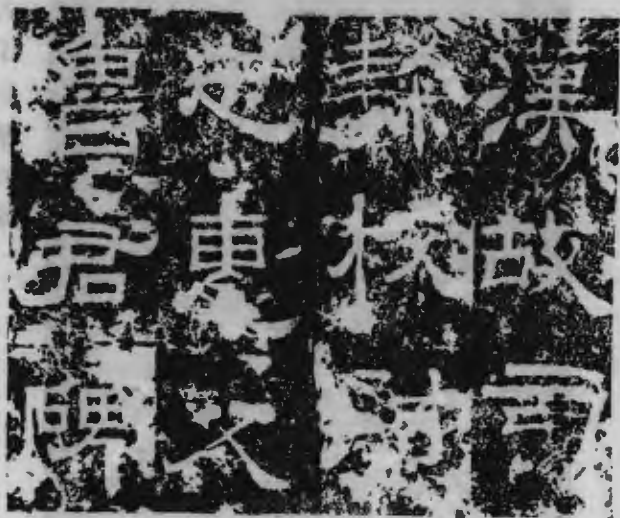 漢故司
隸校尉
忠惠父
魯君碑